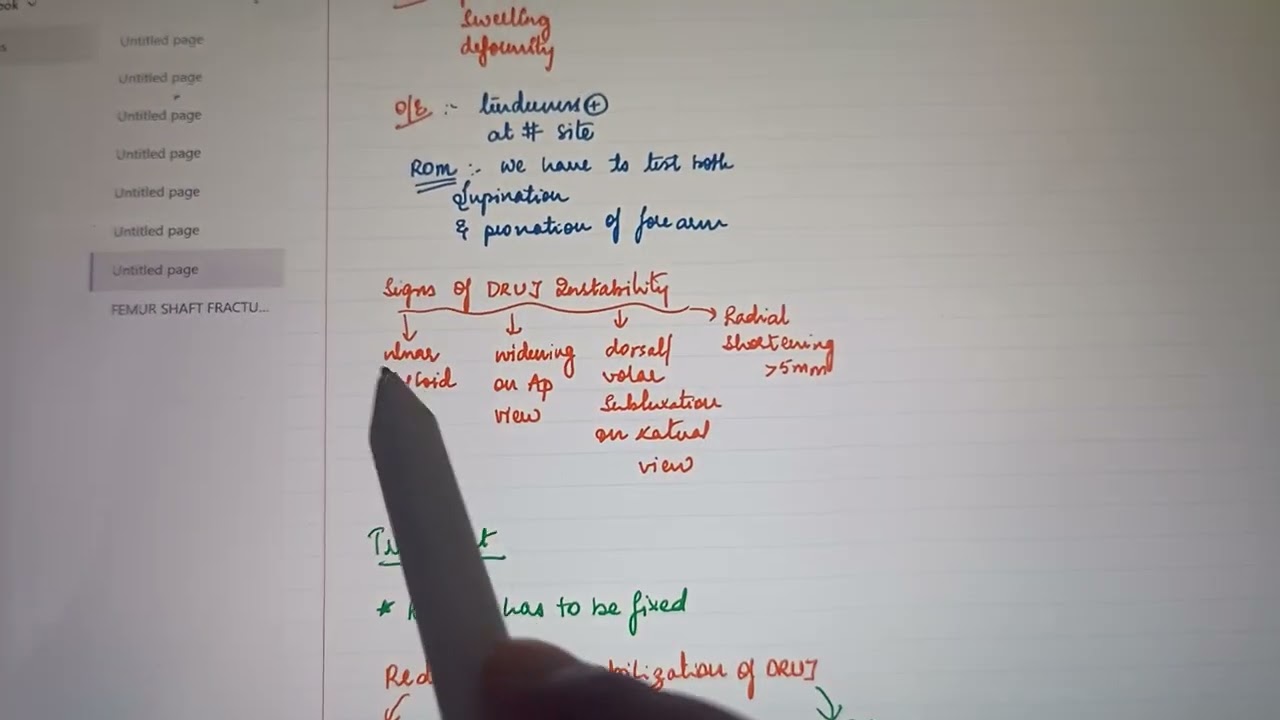 ook
s
Untitled page
Untitled page
Untitled page
Untitled page
Untitled page
Untitled page
Untitled page
FEMUR SHAFT FRACTU...
swelling
deformity
O/E :- tenderness ⊕
at # site
ROM :- we have to test both
Supination
& pronation of forearm
Signs of DRUJ Instability
ulnar
widening
on AP
view
dorsal/
volar
subluxation
on Lateral
view
Radial
shortening
>5mm
* has to be fixed
Red of DRUJ